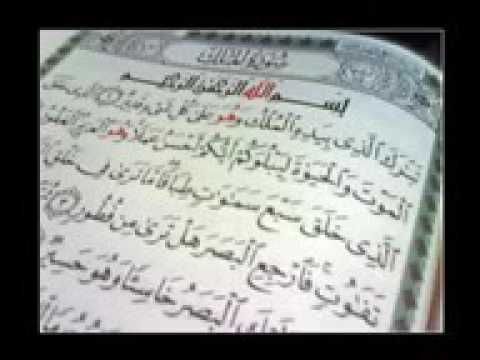 سورة الملك
بسم الله الرحمن الرحيم
تبرك الذى بيده الملك وهو على كل شىء قدير
الموت والحيوة ليبلوكم أيكم أحسن عملا وهو العزيز الغفور
الذى خلق سبع سموت طباقا ما ترى فى خلق
تفوت فارجع البصر هل ترى من فطور ٣
البصر خاسئا وهو حسير